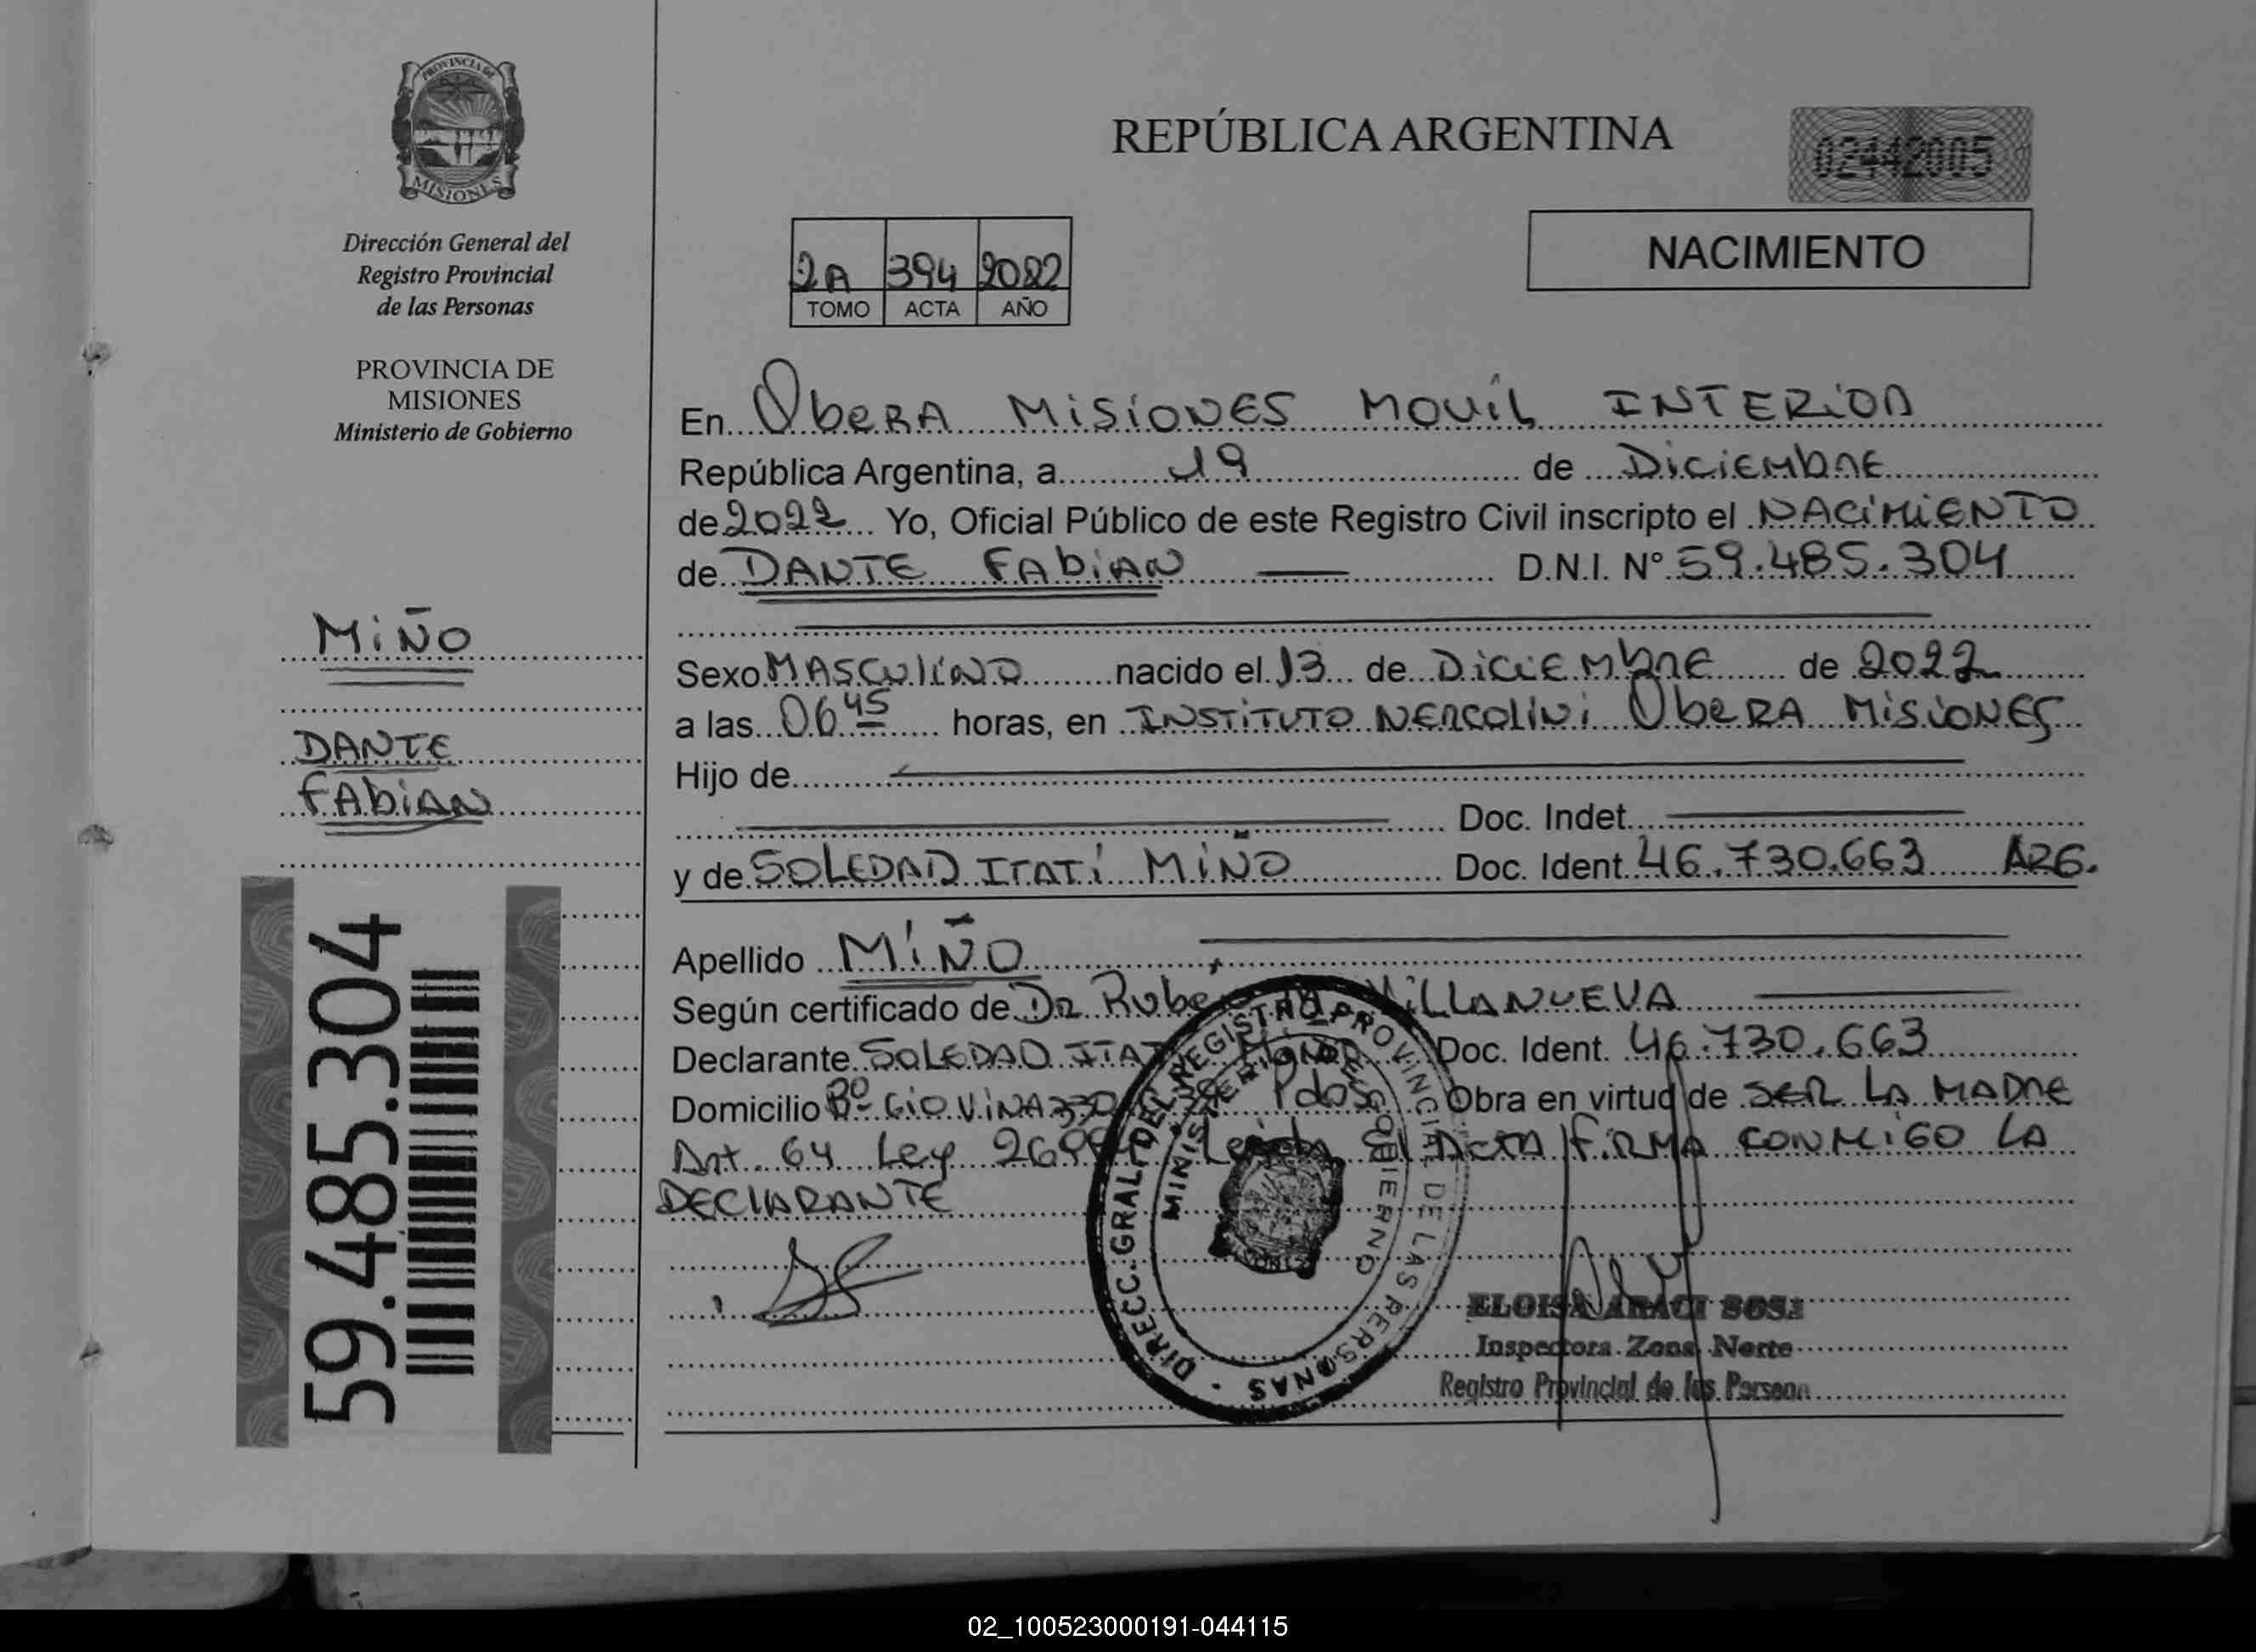 PROVINCIA DE
MISIONES
Dirección General del
Registro Provincial
de las Personas
PROVINCIA DE
MISIONES
Ministerio de Gobierno
MIÑO
DANTE
FABIAN
59.485.304
REPÚBLICA ARGENTINA
02442005
NACIMIENTO
2A 394 2022
TOMO ACTA AÑO
En OberA MISIONES MOVIL INTERIOR
República Argentina, a 19 de DiciEMbRE
de 2022 Yo, Oficial Público de este Registro Civil inscripto el NACIMIENTO
de DANTE FABIAN D.N.I. N° 59.485.304
Sexo MASCULINO nacido el 13 de DICIEMbRE de 2022
a las 06 45 horas, en INSTITUTO NERCOLINI OberA MISIONES
Hijo de
Doc. Indet.
y de SOLEDAD ITATÍ MIÑO Doc. Ident. 46.730.663 ARG.
Apellido MIÑO
Según certificado de DR Rube VILLANUEVA
Declarante SOLEDAD ITATI Doc. Ident. 46.730.663
Domicilio Bº GIOVINAZZO Pdas Obra en virtud de SER LA MADRE
Art. 64 Ley Leida el ACTA FIRMA CONMIGO LA
DECLARANTE
DIRECC. GRAL. DEL REGISTRO PROVINCIAL DE LAS PERSONAS
MINISTERIO DE GOBIERNO
ELOISA ARACI SOSA
Inspectora Zona Norte
Registro Provincial de las Person
02_100523000191-044115